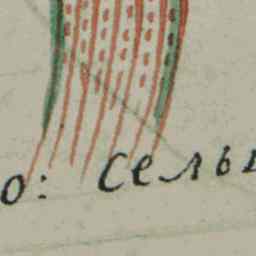 о: сельі